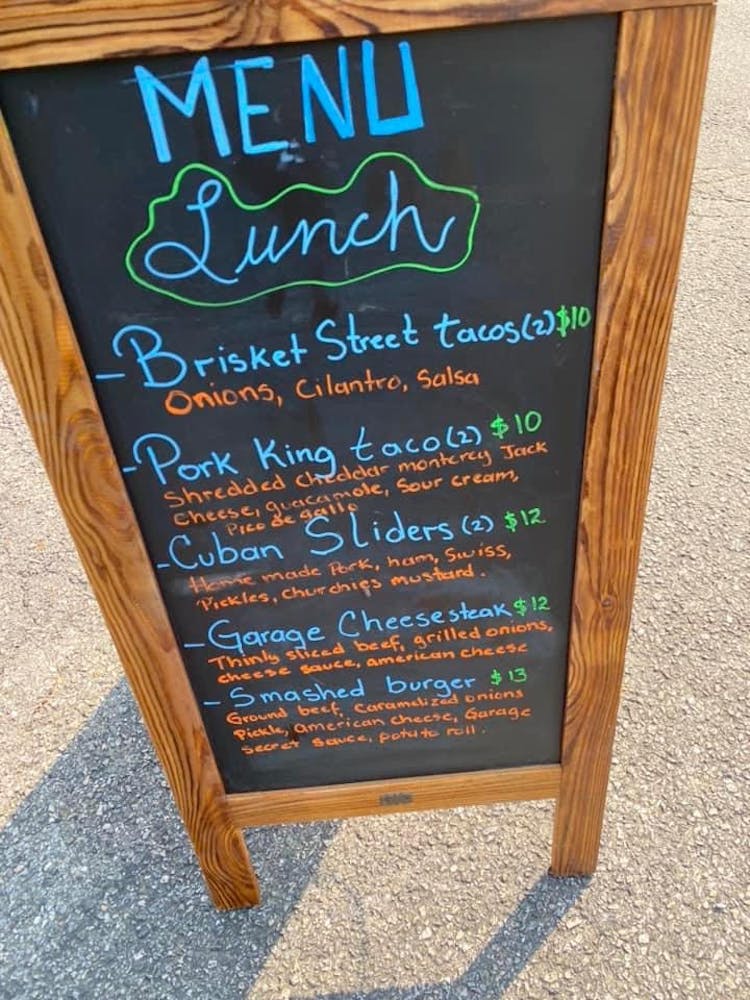 MENU
Lunch
- Brisket Street tacos (2) $10
Onions, Cilantro, Salsa
- Pork King taco (2) $10
Shredded cheddar monterey Jack
Cheese, guacamole, Sour cream,
Pico de gallo
- Cuban Sliders (2) $12
Home made Pork, ham, Swiss,
Pickles, churchies mustard.
- Garage Cheesesteak $12
Thinly sliced beef, grilled onions,
cheese sauce, american cheese
- Smashed burger $13
Ground beef, Caramelized onions
Pickle, american cheese, Garage
secret sauce, potato roll.